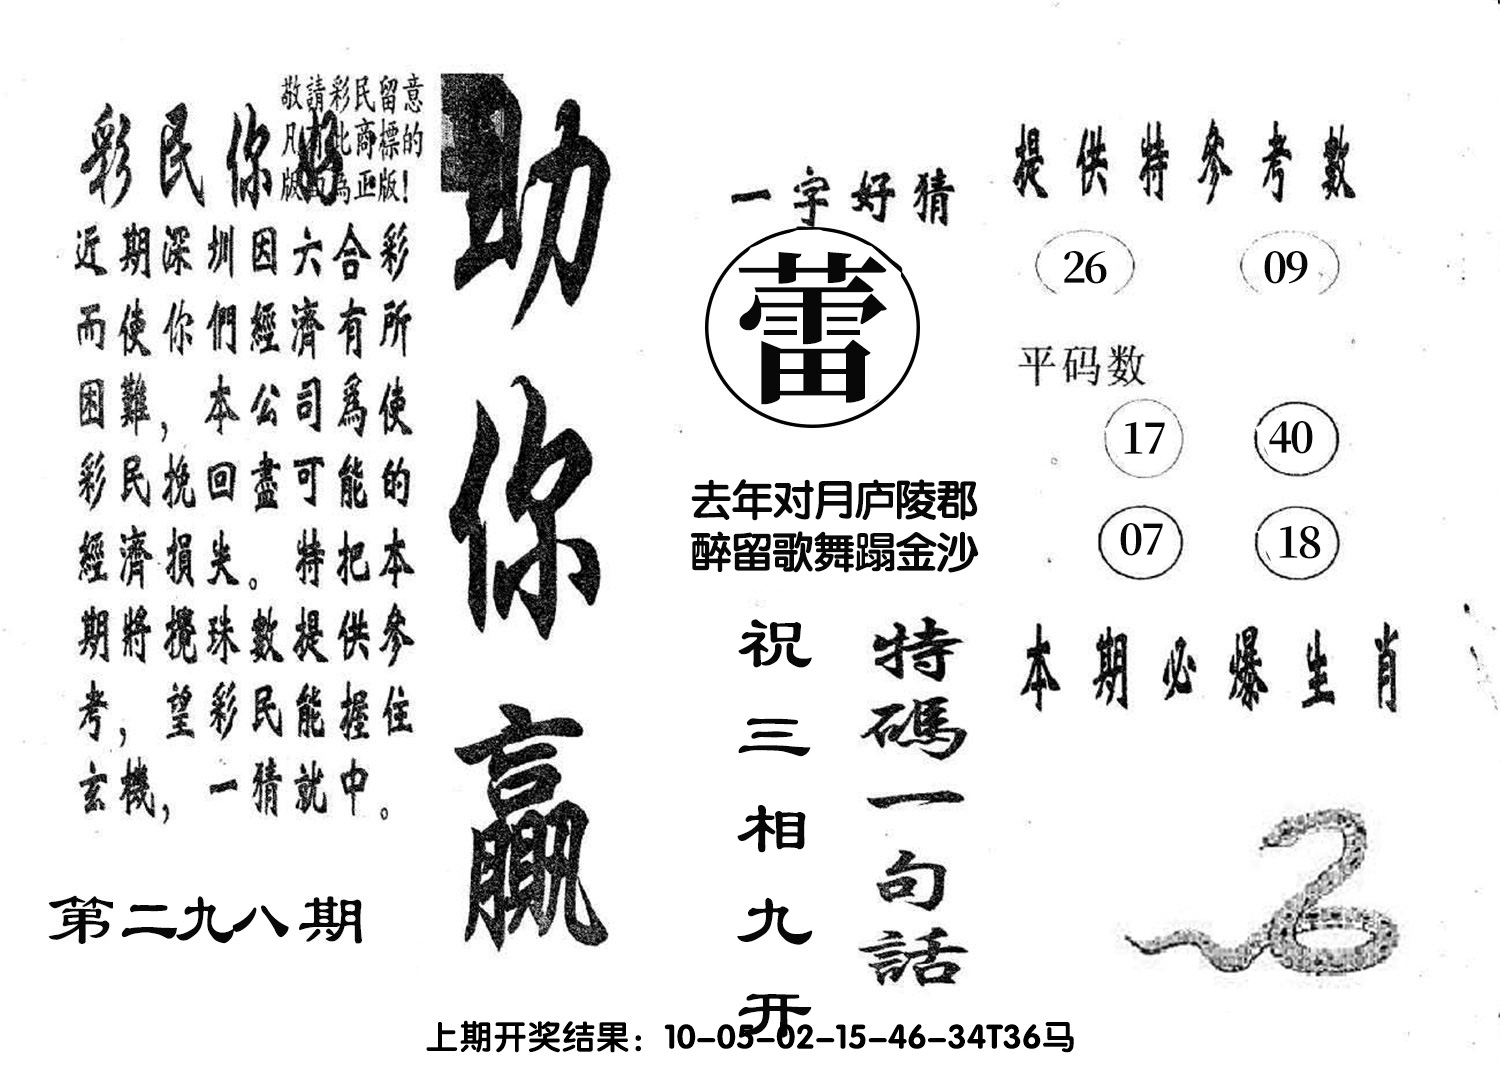 敬請彩民留意
凡有此商標的
版面為正版！
彩民你好
近期深圳因六合彩
而使你們經濟有所
困難，本公司爲使
彩民挽回盡可能的
經濟損失。特把本
期將攪珠數提供參
考，望彩民能握住
玄機，一猜就中。
第二九八期
助你贏
一字好猜
蕾
去年对月庐陵郡
醉留歌舞蹋金沙
特碼一句話
祝三相九开
提供特參考數
26 09
平码数
17 40
07 18
本期必爆生肖
上期开奖结果：10-05-02-15-46-34T36马